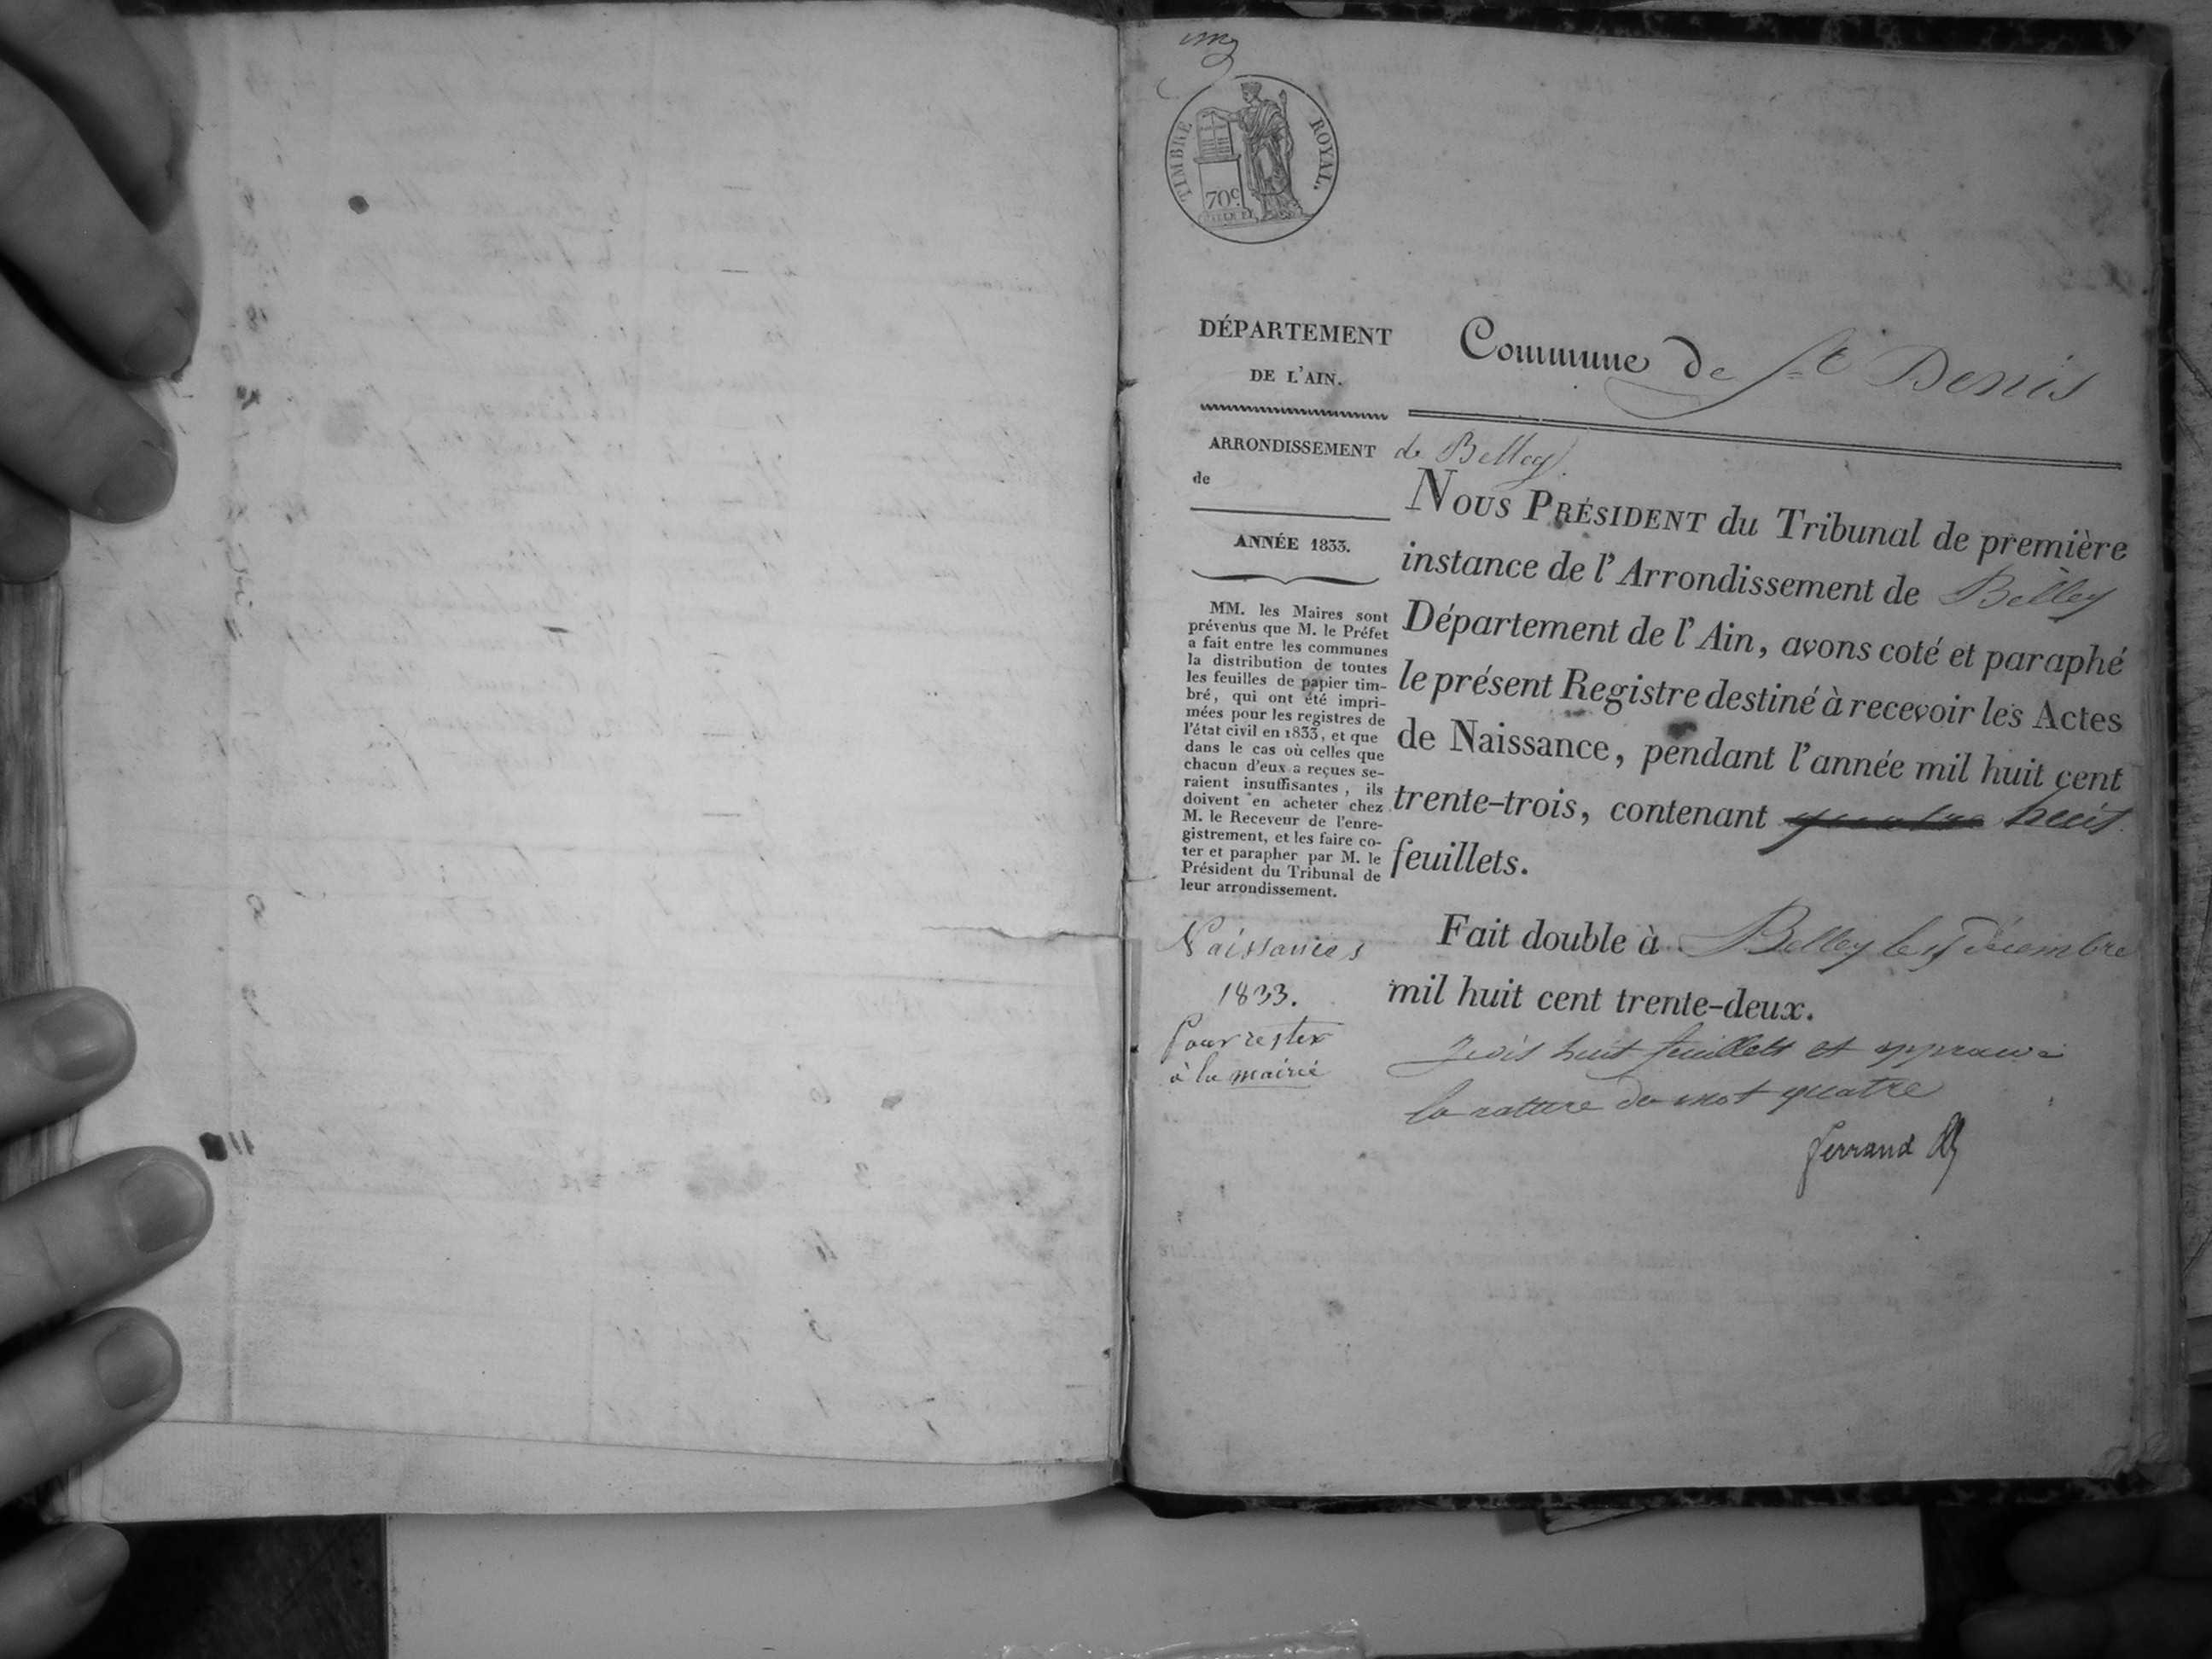 TIMBRE ROYAL.
70c.
DÉPARTEMENT
DE L'AIN.
Commune de St Denis
ARRONDISSEMENT de Belley
de
ANNÉE 1833.
MM. les Maires sont
prévenus que M. le Préfet
a fait entre les communes
la distribution de toutes
les feuilles de papier tim-
bré, qui ont été impri-
mées pour les registres de
l'état civil en 1833, et que
dans le cas où celles que
chacun d'eux a reçues se-
raient insuffisantes, ils
doivent en acheter chez
M. le Receveur de l'enre-
gistrement, et les faire co-
ter et parapher par M. le
Président du Tribunal de
leur arrondissement.
Naissances
1833.
Pour rester
à la mairie
NOUS PRÉSIDENT du Tribunal de première
instance de l'Arrondissement de Belley
Département de l'Ain, avons coté et paraphé
le présent Registre destiné à recevoir les Actes
de Naissance, pendant l'année mil huit cent
trente-trois, contenant quatre huit
feuillets.
Fait double à Belley le décembre
mil huit cent trente-deux.
huit feuillets et approuvé
la rature du mot quatre
Ferrand